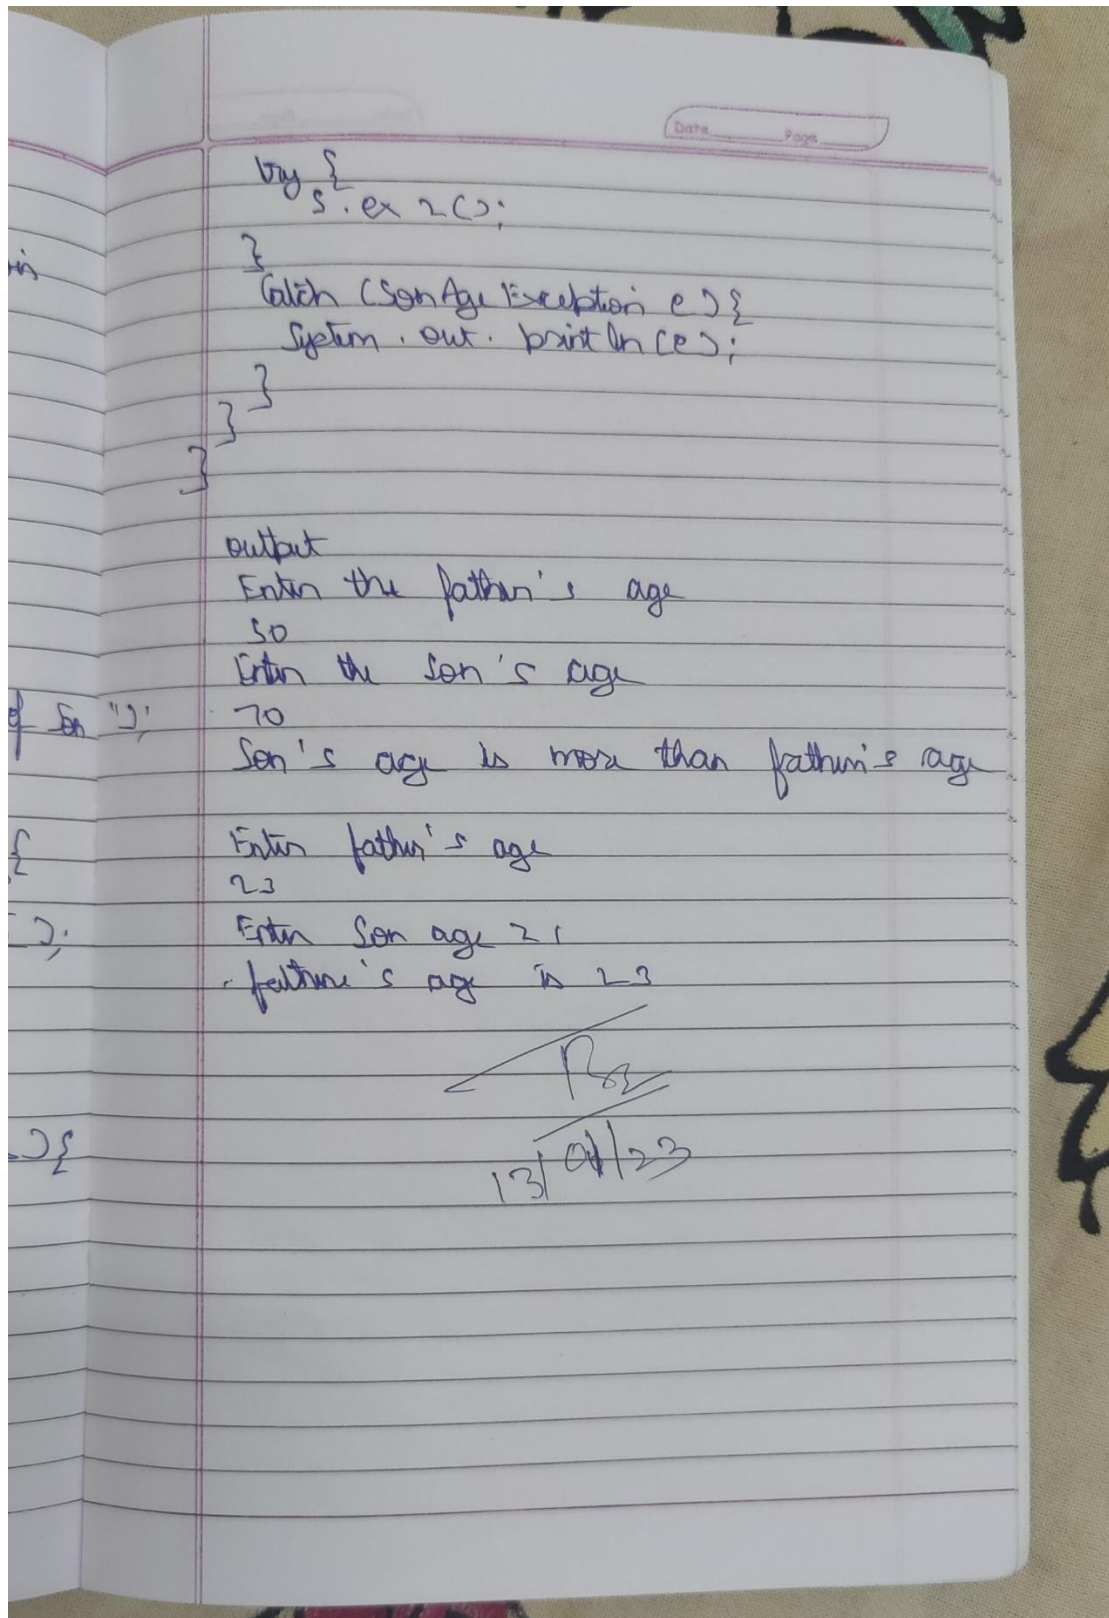 Date Page
try {
S.ex2();
}
Catch (SonAgeException e) {
System.out.println(e);
}
}
}
output
Enter the father's age
50
Enter the Son's age
70
Son's age is more than father's age
Enter father's age
23
Enter Son age 21
father's age is 23
13/01/23
of Son ");
{
);
){